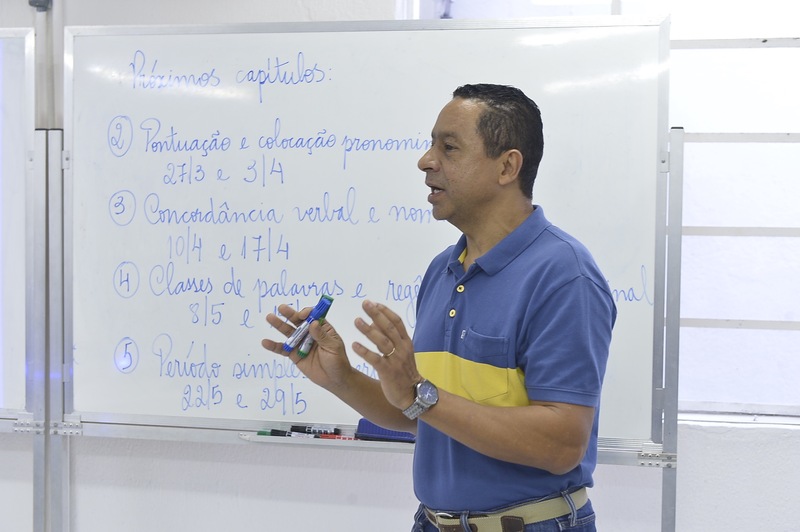 Próximos capítulos:
② Pontuação e colocação
27/3 e 3/4
③ Concordância verbal e
10/4 e 17/4
④ Classes de palavras e
8/5 e
⑤ Período
22/5 e 29/5